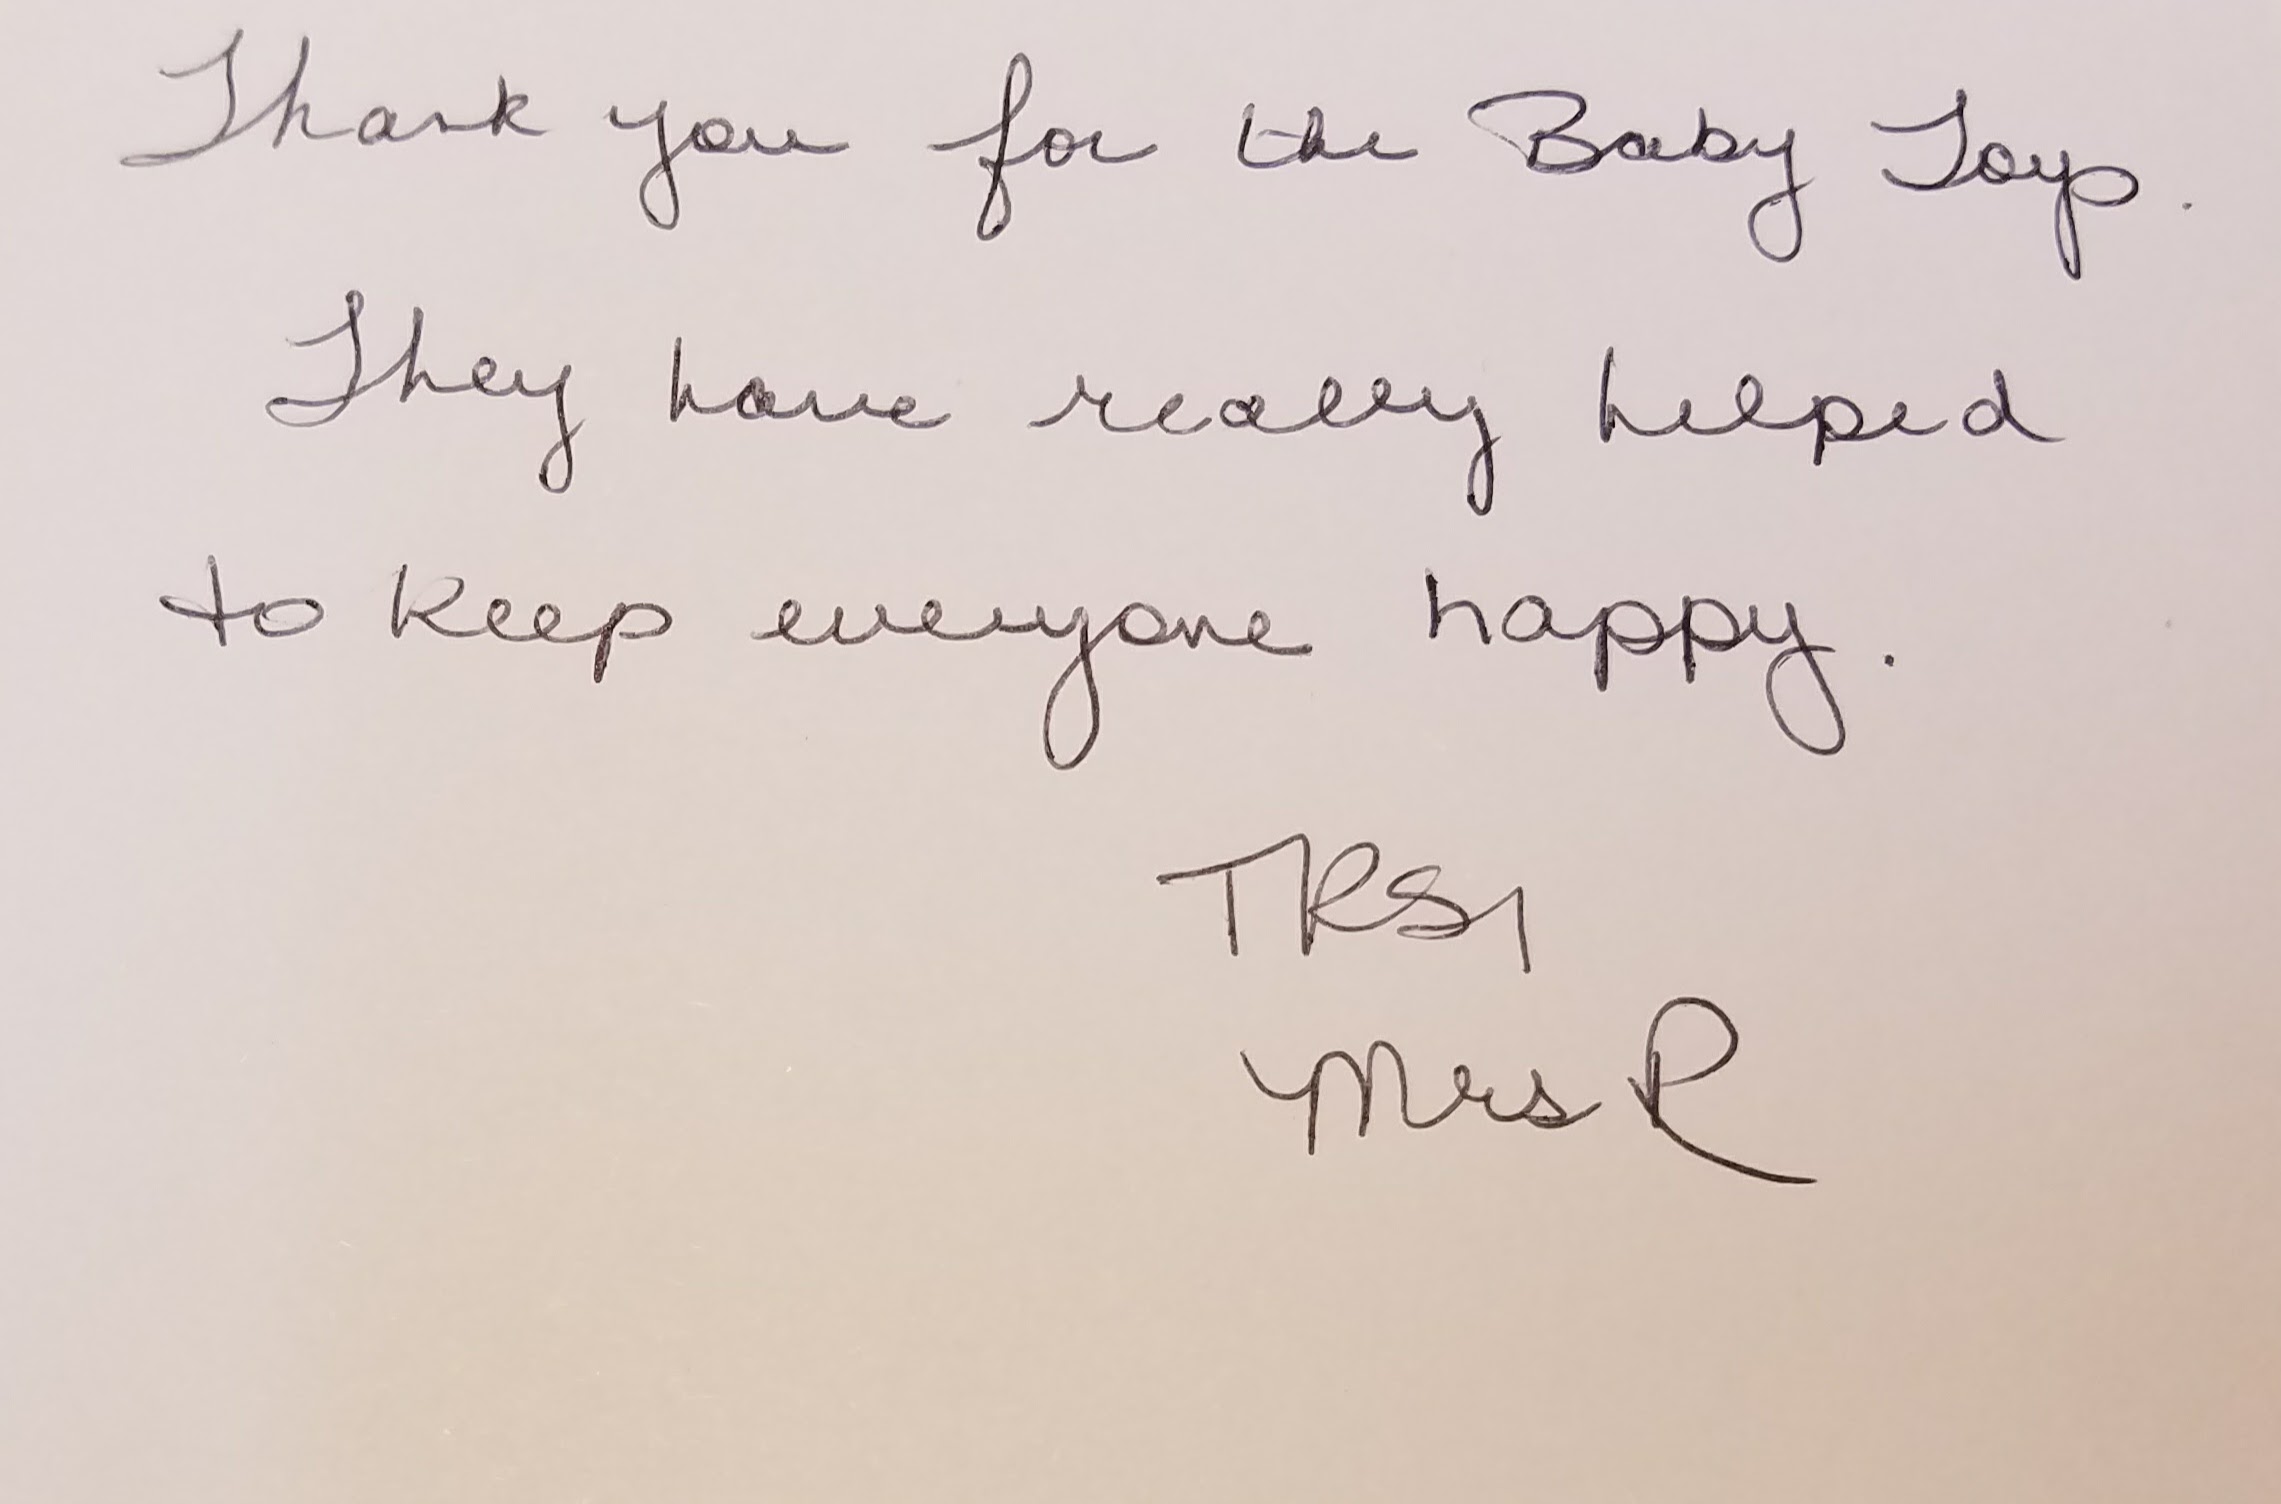 Thank you for the Baby Toys.
They have really helped
to keep everyone happy.
TKS,
Mrs R